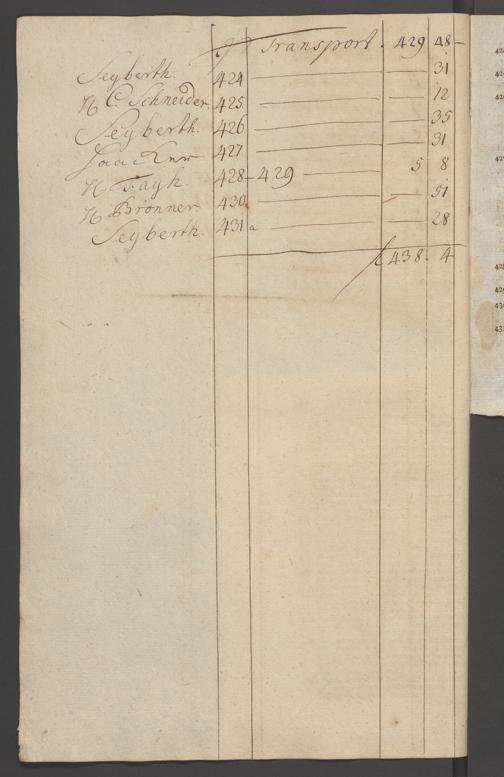 Transport. 429 48
Seyberth. 424 31
H C. Schneider. 425 12
Seyberth. 426 35
427 31
H Fayh. 428 - 429 5 8
H Brönner 430 51
Seyberth. 431 a 28
438. 4